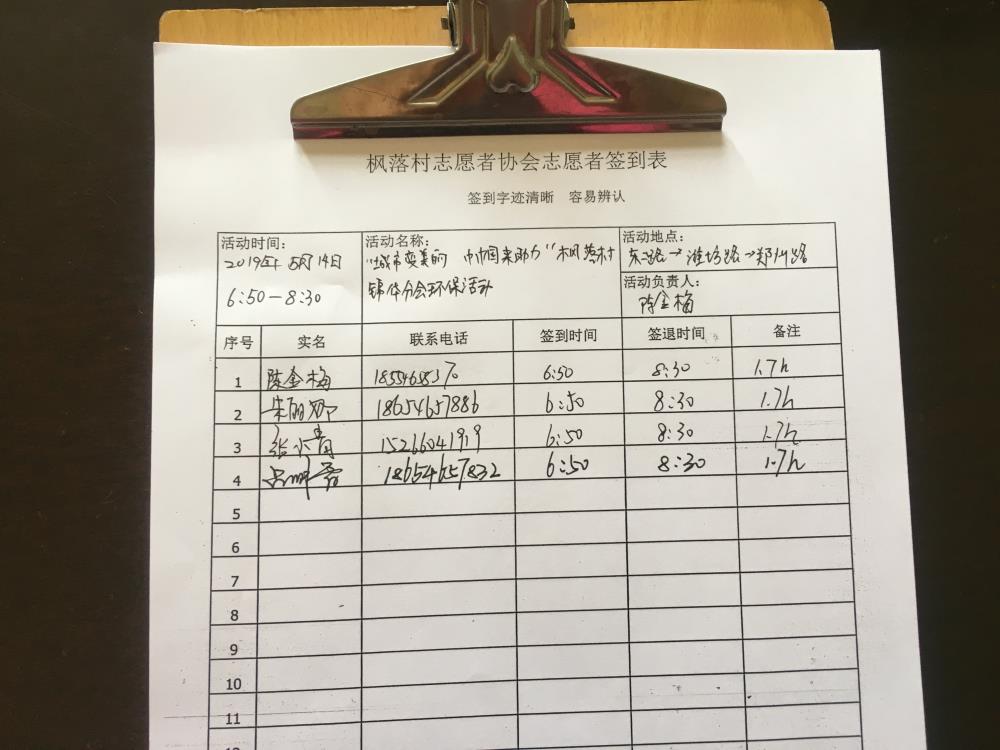 枫落村志愿者协会志愿者签到表
签到字迹清晰 容易辨认
活动时间： 活动名称： 活动地点：
2019年5月14日 "城市变美的 巾帼来助力"枫落村 东二路→潍坊路→郑州路
6:50-8:30 锦华分会环保活动 活动负责人：
陈金梅
序号 实名 联系电话 签到时间 签退时间 备注
1 陈金梅 6:50 8:30 1.7h
2 朱丽娜 18654657886 6:50 8:30 1.7h
3 15266041919 6:50 8:30 1.7h
4 18654657832 6:50 8:30 1.7h
5
6
7
8
9
10
11